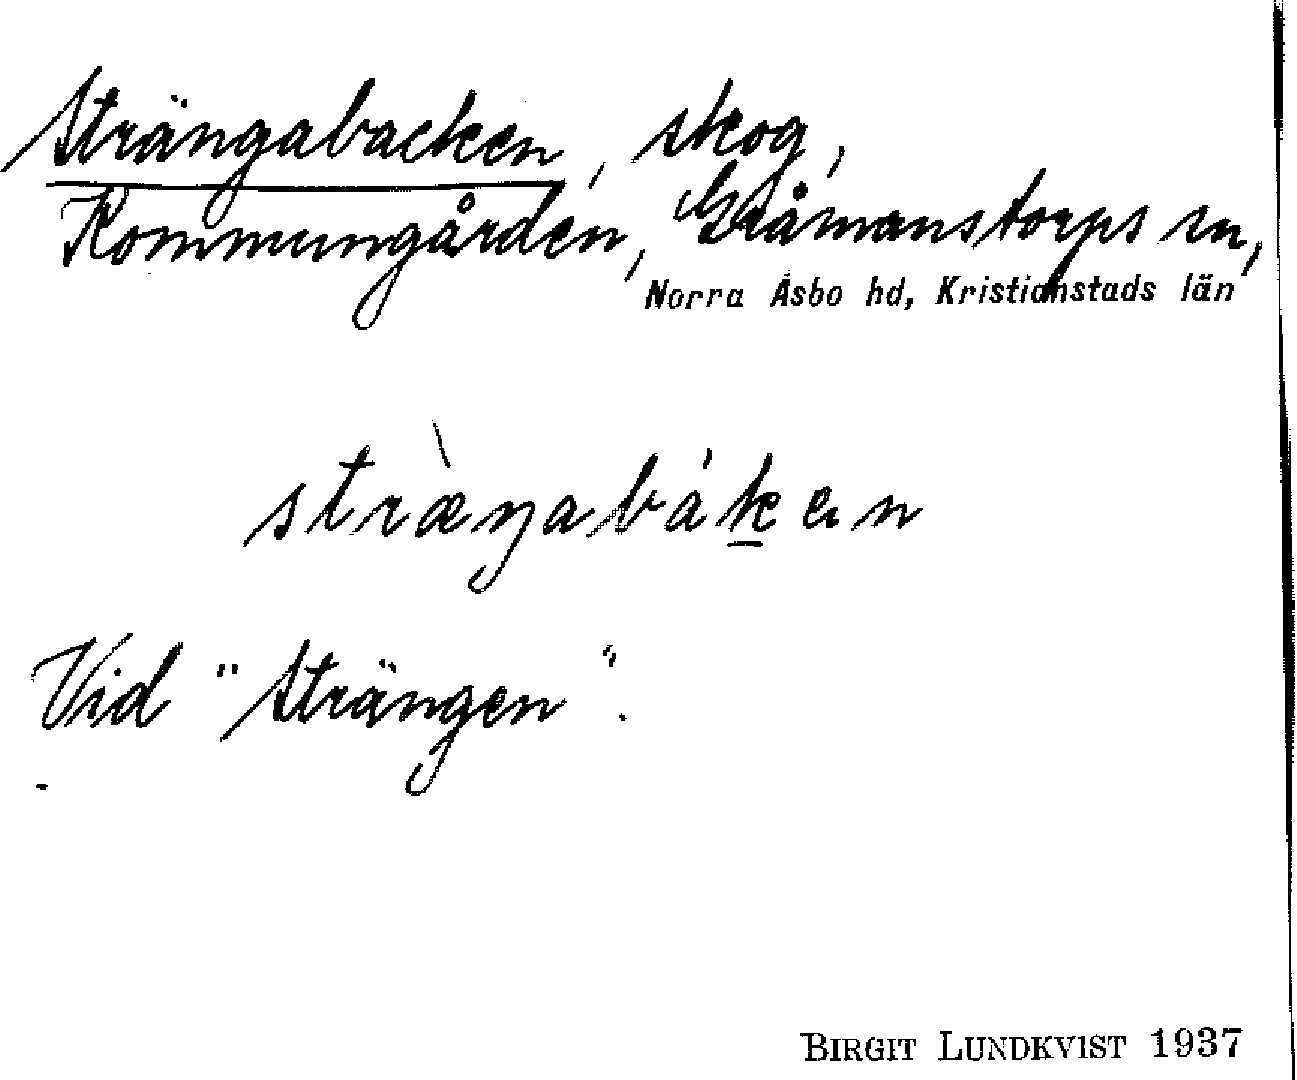 Strängabacken, skog,
Kommungården, Gråmanstorps sn,
Norra Åsbo hd, Kristianstads län
stræ̀ŋabák̲ɐn
Vid "Strängen".
BIRGIT LUNDKVIST 1937